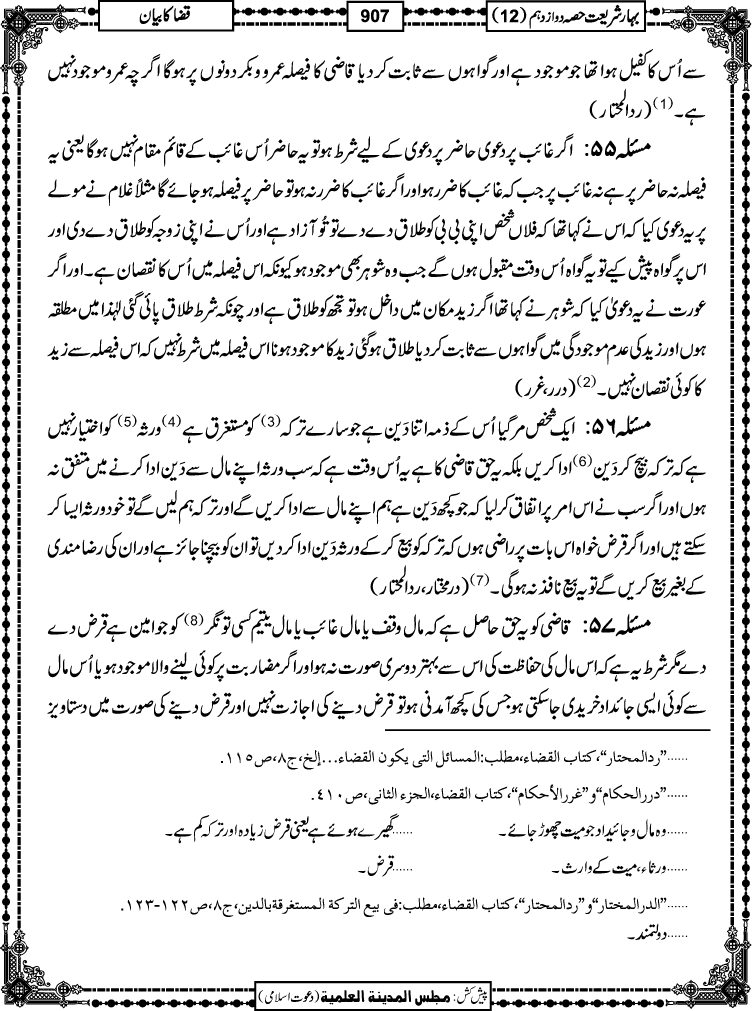 بہار شریعت حصہ دوازدہم (12)
907
قضا کا بیان
سے اُس کا کفیل ہوا تھا جو موجود ہے اور گواہوں سے ثابت کر دیا قاضی کا فیصلہ عمرو و بکر دونوں پر ہوگا اگرچہ عمرو موجود نہیں
ہے۔(1) (ردالمحتار)
مسئلہ ۵۵: اگر غائب پر دعوی حاضر پر دعوی کے لیے شرط ہو تو یہ حاضر اُس غائب کے قائم مقام نہیں ہوگا یعنی یہ
فیصلہ نہ حاضر پر ہے نہ غائب پر جب کہ غائب کا ضرر ہو اور اگر غائب کا ضرر نہ ہو تو حاضر پر فیصلہ ہو جائے گا مثلاً غلام نے مولے
پر یہ دعوی کیا کہ اس نے کہا تھا کہ فلاں شخص اپنی بی بی کو طلاق دے دے تو تُو آزاد ہے اور اُس نے اپنی زوجہ کو طلاق دے دی اور
اس پر گواہ پیش کیے تو یہ گواہ اُس وقت مقبول ہوں گے جب وہ شوہر بھی موجود ہو کیونکہ اس فیصلہ میں اُس کا نقصان ہے۔ اور اگر
عورت نے یہ دعویٰ کیا کہ شوہر نے کہا تھا اگر زید مکان میں داخل ہو تو تجھ کو طلاق ہے اور چونکہ شرط طلاق پائی گئی لہٰذا میں مطلقہ
ہوں اور زید کی عدم موجودگی میں گواہوں سے ثابت کر دیا طلاق ہو گئی زید کا موجود ہونا اس فیصلہ میں شرط نہیں کہ اس فیصلہ سے زید
کا کوئی نقصان نہیں۔(2) (درر، غرر)
مسئلہ ۵۶: ایک شخص مر گیا اُس کے ذمہ اتنا دَین ہے جو سارے ترکہ(3) کو مستغرق ہے(4) ورثہ(5) کو اختیار نہیں
ہے کہ ترکہ بیچ کر دَین(6) ادا کریں بلکہ یہ حق قاضی کا ہے یہ اُس وقت ہے کہ سب ورثہ اپنے مال سے دَین ادا کرنے میں متفق نہ
ہوں اور اگر سب نے اس امر پر اتفاق کر لیا کہ جو کچھ دَین ہے ہم اپنے مال سے ادا کریں گے اور ترکہ ہم لیں گے تو خود ورثہ ایسا کر
سکتے ہیں اور اگر قرض خواہ اس بات پر راضی ہوں کہ ترکہ کو بیع کر کے ورثہ دَین ادا کر دیں تو ان کو بیچنا جائز ہے اور ان کی رضا مندی
کے بغیر بیع کریں گے تو یہ بیع نافذ نہ ہوگی۔(7) (درمختار، ردالمحتار)
مسئلہ ۵۷: قاضی کو یہ حق حاصل ہے کہ مال وقف یا مال غائب یا مال یتیم کسی تونگر(8) کو جو امین ہے قرض دے
دے مگر شرط یہ ہے کہ اس مال کی حفاظت کی اس سے بہتر دوسری صورت نہ ہو اور اگر مضاربت پر کوئی لینے والا موجود ہو یا اُس مال
سے کوئی ایسی جائداد خریدی جاسکتی ہو جس کی کچھ آمدنی ہو تو قرض دینے کی اجازت نہیں اور قرض دینے کی صورت میں دستاویز
......"ردالمحتار"، کتاب القضاء، مطلب: المسائل التی یکون القضاء...إلخ، ج۸، ص۱۱۵.
......"دررالحکام" و "غررالأحکام"، کتاب القضاء، الجزء الثانی، ص۴۱۰.
......وہ مال و جائیداد جو میت چھوڑ جائے۔ ......گھیرے ہوئے ہے یعنی قرض زیادہ اور ترکہ کم ہے۔
......ورثاء، میت کے وارث۔ ......قرض۔
......"الدرالمختار" و "ردالمحتار"، کتاب القضاء، مطلب: فی بیع الترکة المستغرقة بالدین، ج۸، ص۱۲۲-۱۲۳.
......دولتمند۔
پیش کش: مجلس المدینة العلمیة (دعوت اسلامی)